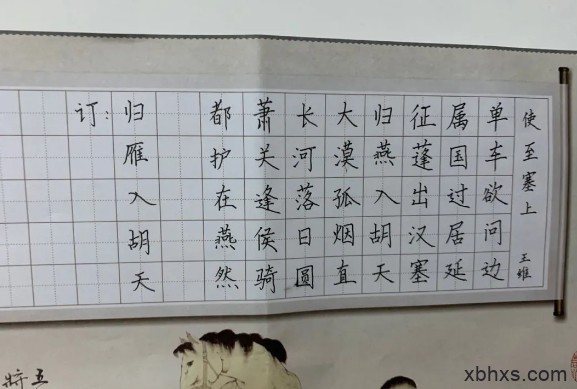 使至塞上
王维
单车欲问边
属国过居延
征蓬出汉塞
归燕入胡天
大漠孤烟直
长河落日圆
萧关逢侯骑
都护在燕然
订：
归雁入胡天
xbhxs.com